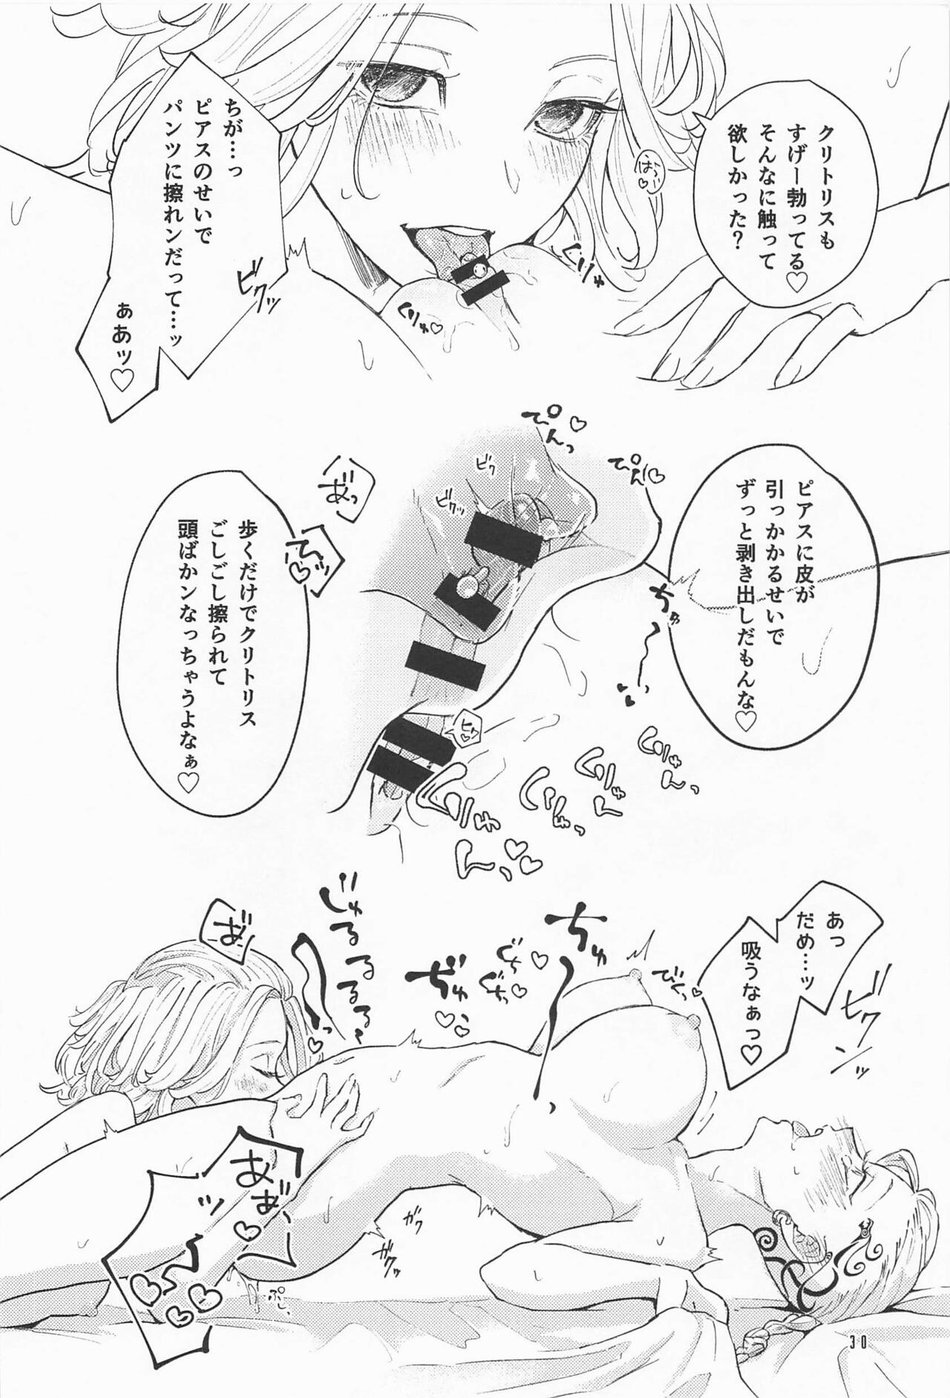 クリトリスも
すげー勃ってる♡
そんなに触って
欲しかった？
はぁー♡
ちが…っ
ピアスのせいで
パンツに擦れンだって…ッ
ぁあッ♡
ビクッ
くりゅっ
くりゅ♡
ピアスに皮が
引っかかるせいで
ずっと剥き出しだもんな♡
ぴんっ♡
ぴん♡
ビク
ビクッ
あ゛っ
歩くだけでクリトリス
ごしごし擦られて
頭ばカンなっちゃうよなぁ♡
くりゅ
くりゅん♡♡
あっ
だめ…ッ
吸うなぁっ♡
ビクンッ
ちゅーっ
ぢゅっ♡♡
ぐちぐちっ♡
じゅるるるるっ
お゛
ガク
ガクッ
ぷし
30